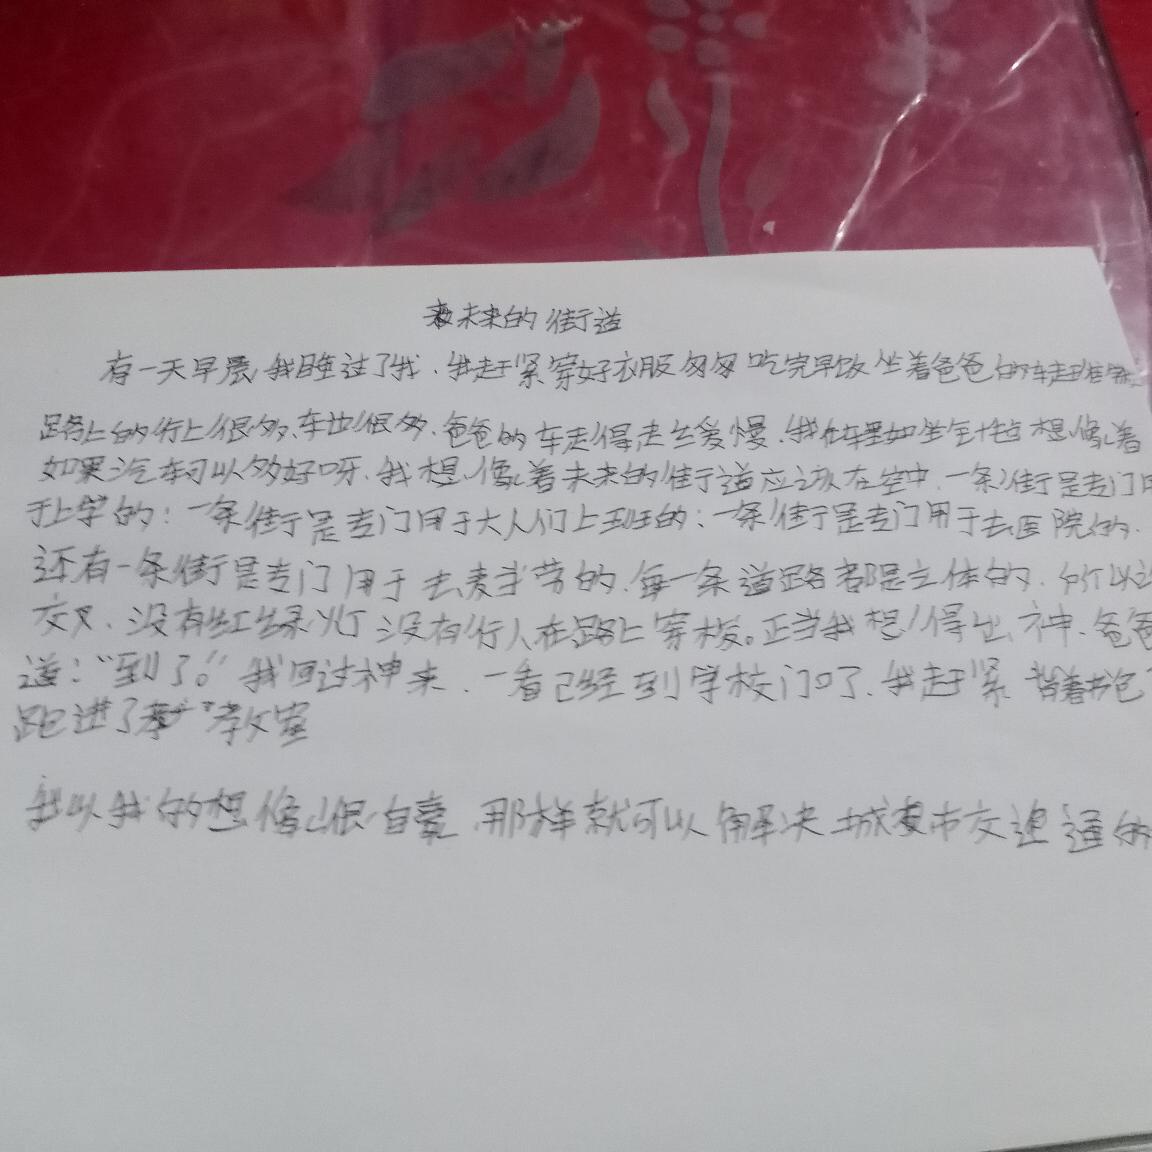 未来的街道
有一天早晨,我睡过了我.我赶紧穿好衣服匆匆吃完早饭坐着爸爸的车赶往学校.
路上的行人很多,车也很多.爸爸的车走得走丝爱慢.我在车里如坐针毡想像着
如果汽车可以多好呀.我想像着未来的街道应该在空中.一条街是专门用
于上学的:一条街是专门用于大人们上班的:一条街是专门用于去医院的.
还有一条街是专门用于去麦当劳的.每一条道路都是立体的.所以没
交叉.没有红绿灯没有行人在路上穿梭。正当我想得出神.爸爸
道:"到了。"我回过神来.一看已经到学校门口了.我赶紧背着书包
跑进了教室
我以我的想像很自豪.那样就可以解决城市交通的